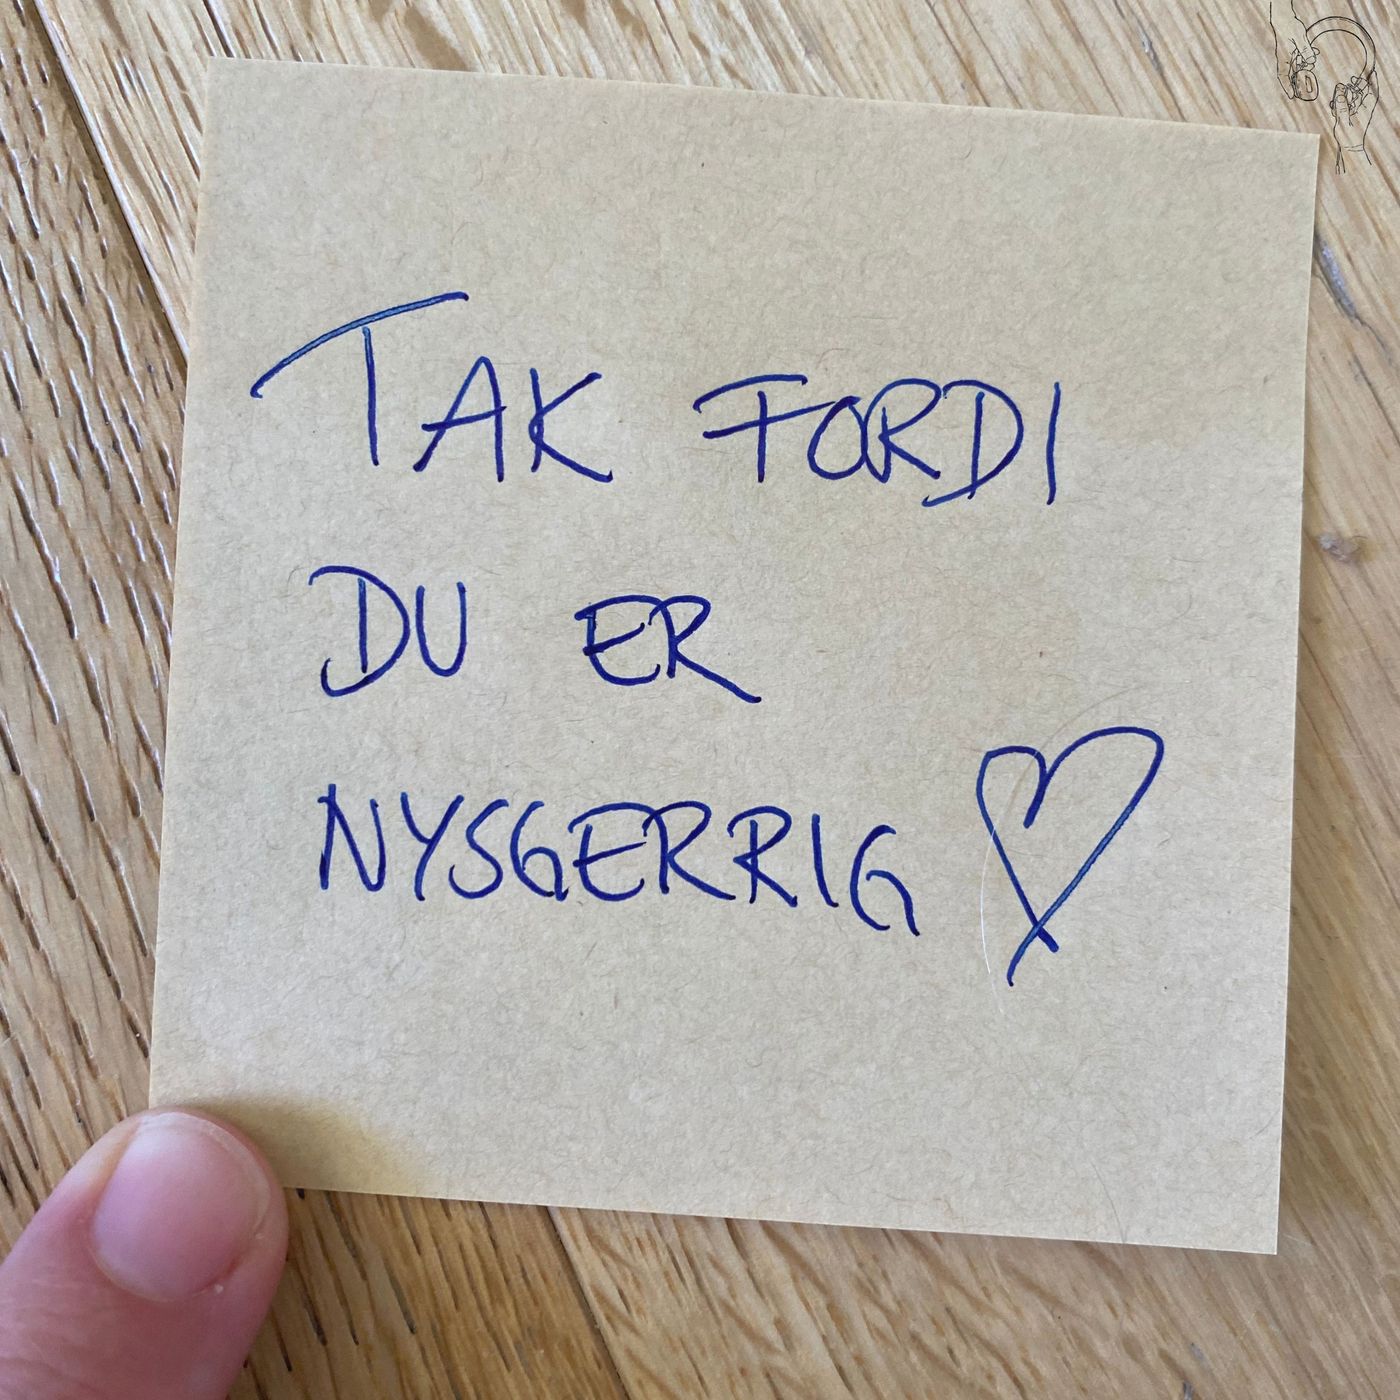 TAK FORDI
DU ER
NYSGERRIG ♡